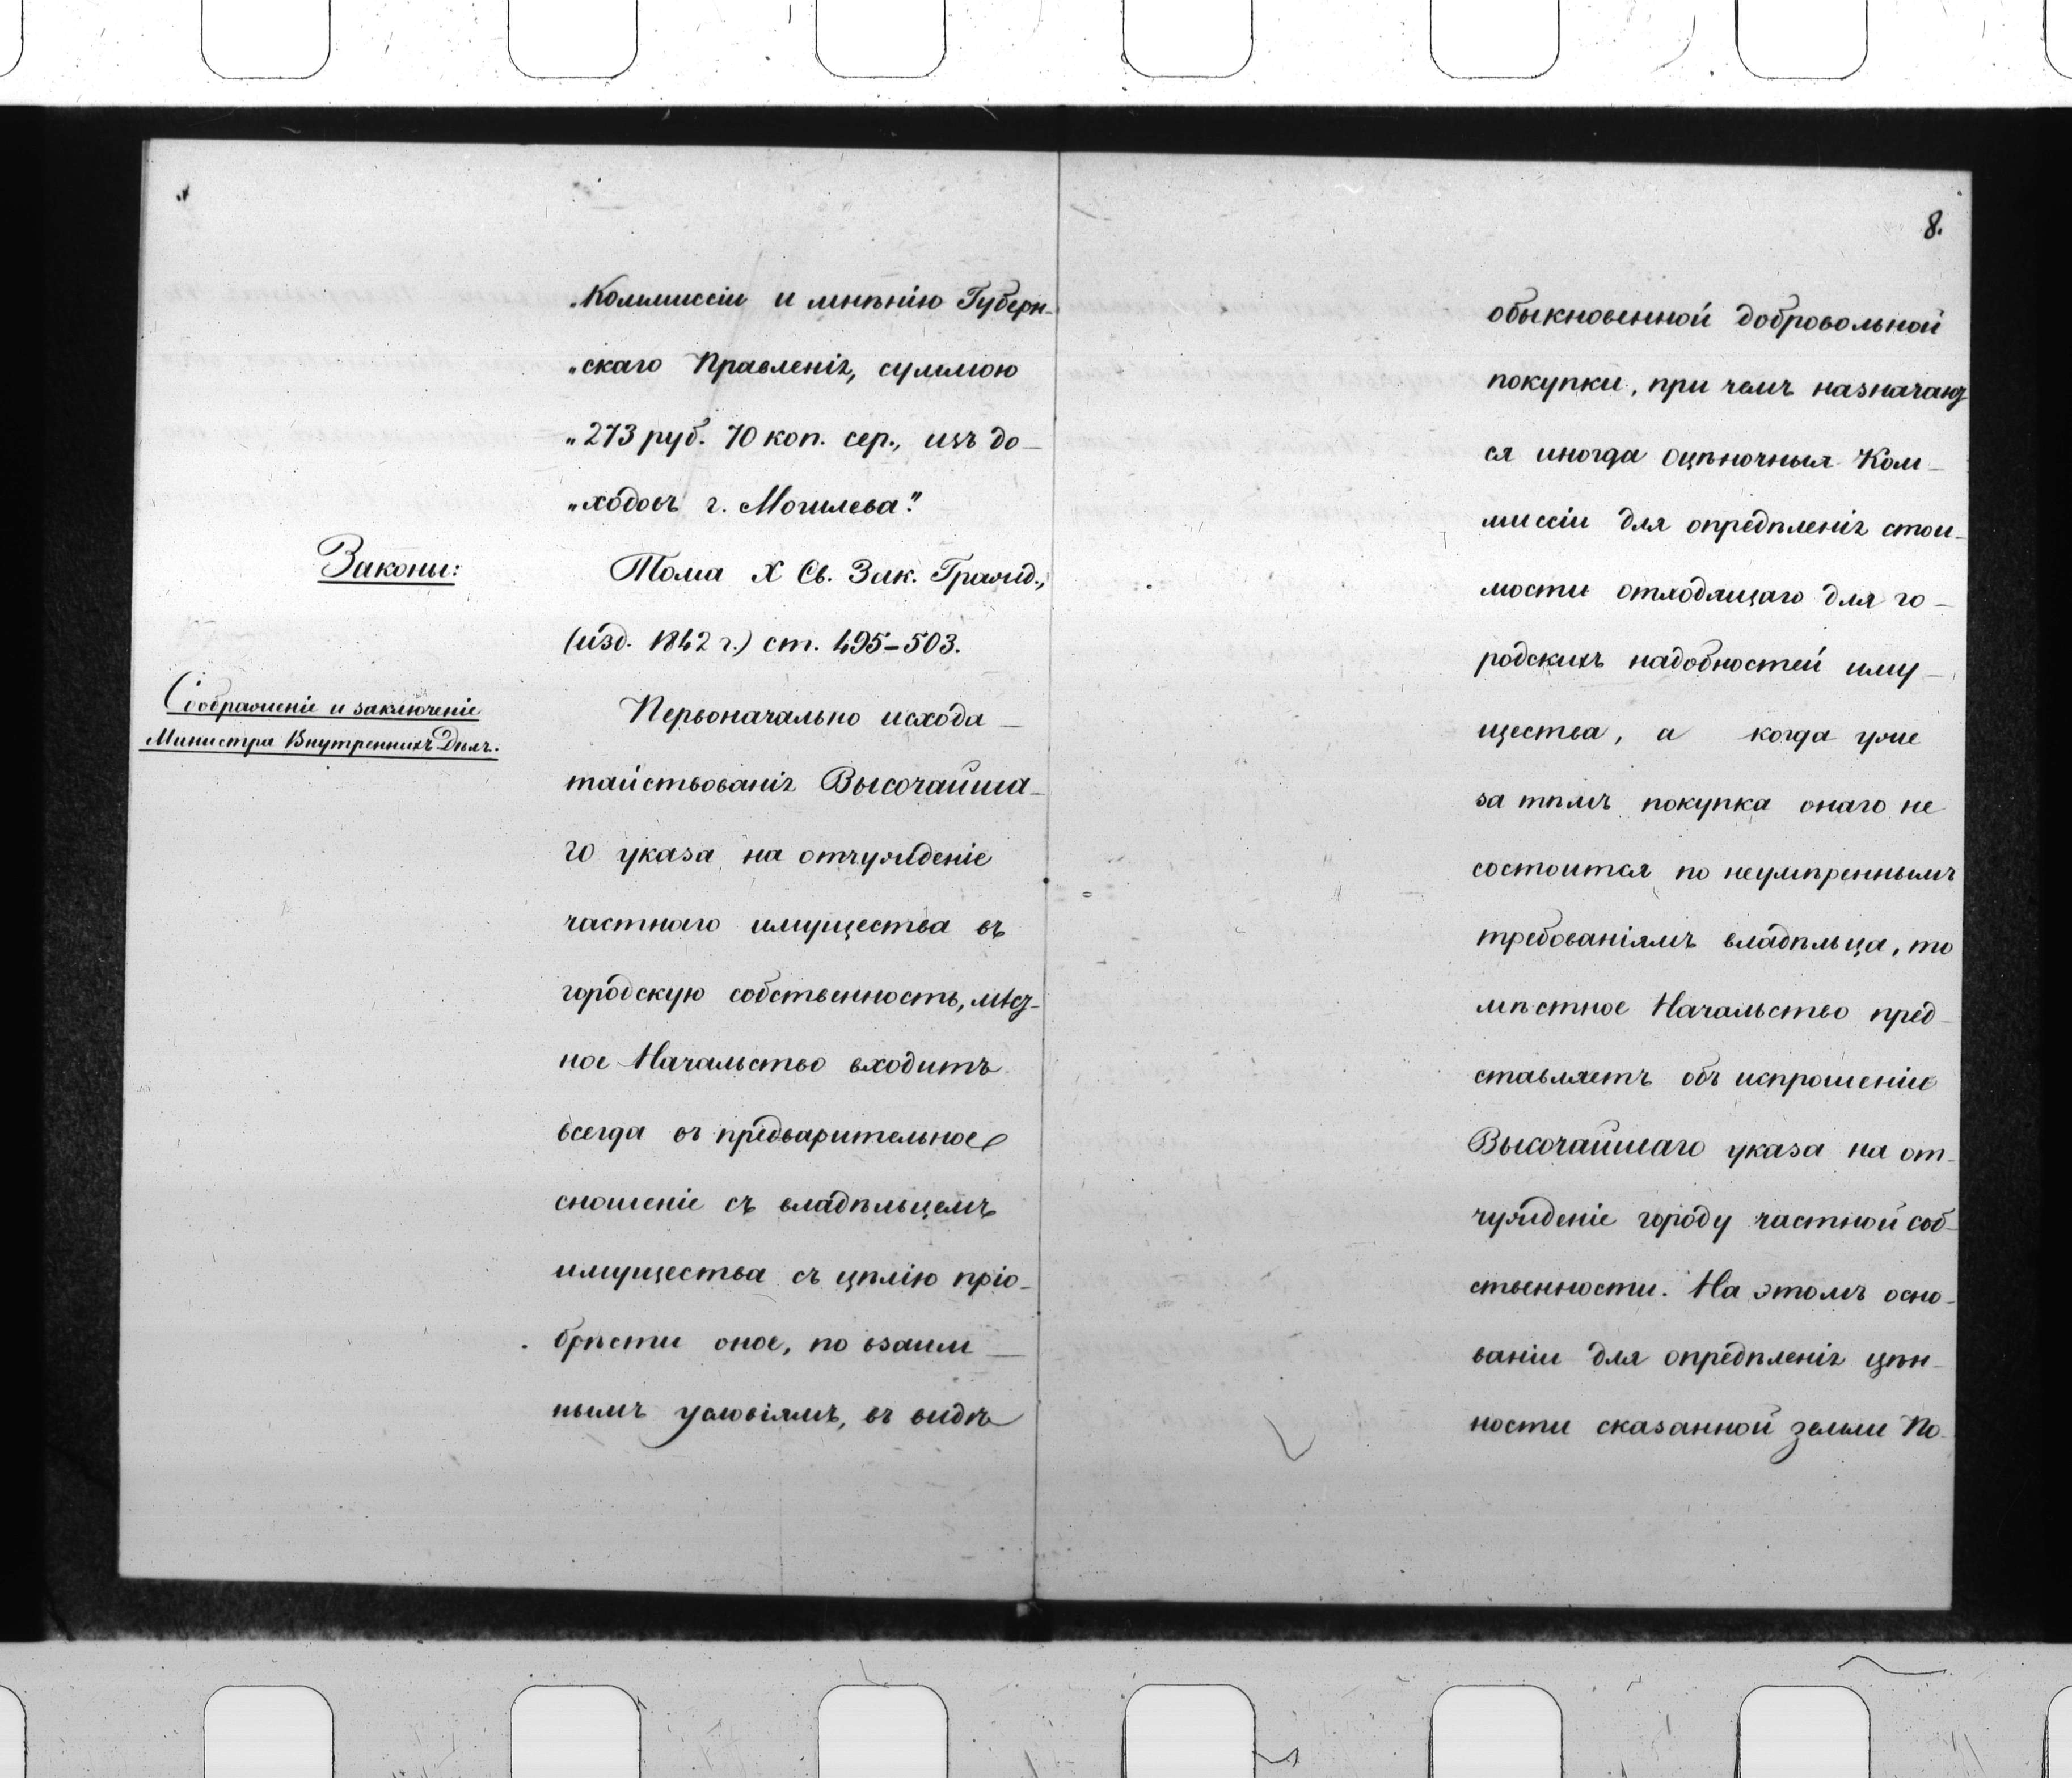 „Коммиссіи и мнѣнію Губерн-
„скаго Правленія, суммою
„273 руб. 70 коп. сер., изъ до-
„ходовъ г. Могилева."
Законы:
Тома X Св. Зак. Гражд.,
(изд. 1842 г.) ст. 495-503.
Соображеніе и заключеніе
Министра Внутреннихъ Дѣлъ.
Первоначально исхода-
тайствованія Высочайша-
го указа на отчужденіе
частнаго имущества въ
городскую собственность, мѣст-
ное Начальство входитъ
всегда въ предварительное
сношеніе съ владѣльцемъ
имущества съ цѣлію пріо-
брѣсти оное, по взаим-
нымъ условіямъ, въ видѣ
8.
обыкновенной добровольной
покупки, при чемъ назначают
ся иногда оцѣночныя Ком-
миссіи для опредѣленія стои-
мости отходящаго для го-
родскихъ надобностей иму-
щества, а когда уже
за тѣмъ покупка онаго не
состоится по неумѣреннымъ
требованіямъ владѣльца, то
мѣстное Начальство пред-
ставляетъ объ испрошеніи
Высочайшаго указа на от-
чужденіе городу частной соб-
ственности. На этомъ осно-
ваніи для опредѣленія цѣн-
ности сказанной земли По-